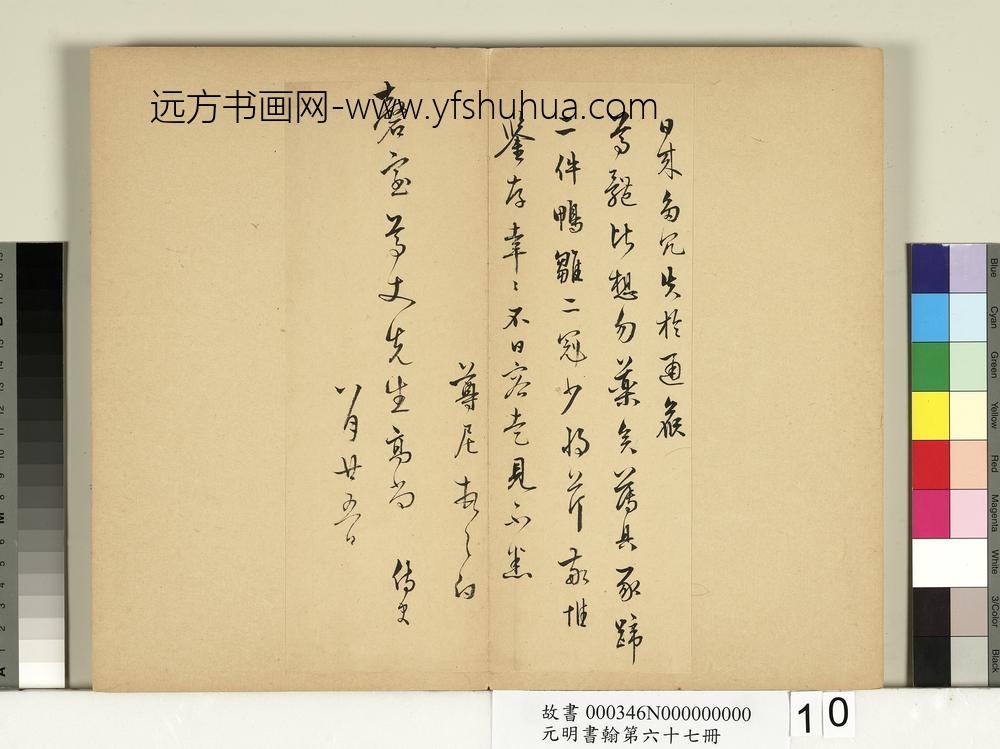 远方书画网-www.yfshuhua.com
日來多冗失於通候
尊體比想勿藥矣薄具豕蹄
一件鴨雛二冠少將芹敬惟
鑒存幸〻不日容走見不悉
白
磬室尊丈先生高尚 侍史
八月廿五日
Blue
Cyan
Green
Yellow
Red
Magenta
White
3/Color
Black
故書 000346N000000000
元明書翰第六十七冊
10